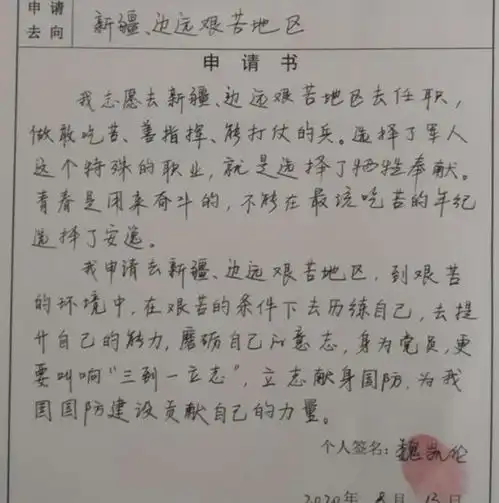 申请
去向
新疆、边远艰苦地区
申请书
我志愿去新疆、边远艰苦地区去任职，
做敢吃苦、善指挥、能打仗的兵。选择了军人
这个特殊的职业，就是选择了牺牲奉献。
青春是用来奋斗的，不能在最该吃苦的年纪
选择了安逸。
我申请去新疆、边远艰苦地区，到艰苦
的环境中，在艰苦的条件下去历练自己，去提
升自己的能力，磨砺自己的意志，身为党员，更
要叫响“三到一立志”，立志献身国防，为我
国国防建设贡献自己的力量。
个人签名：魏凯伦
2020年8月13日